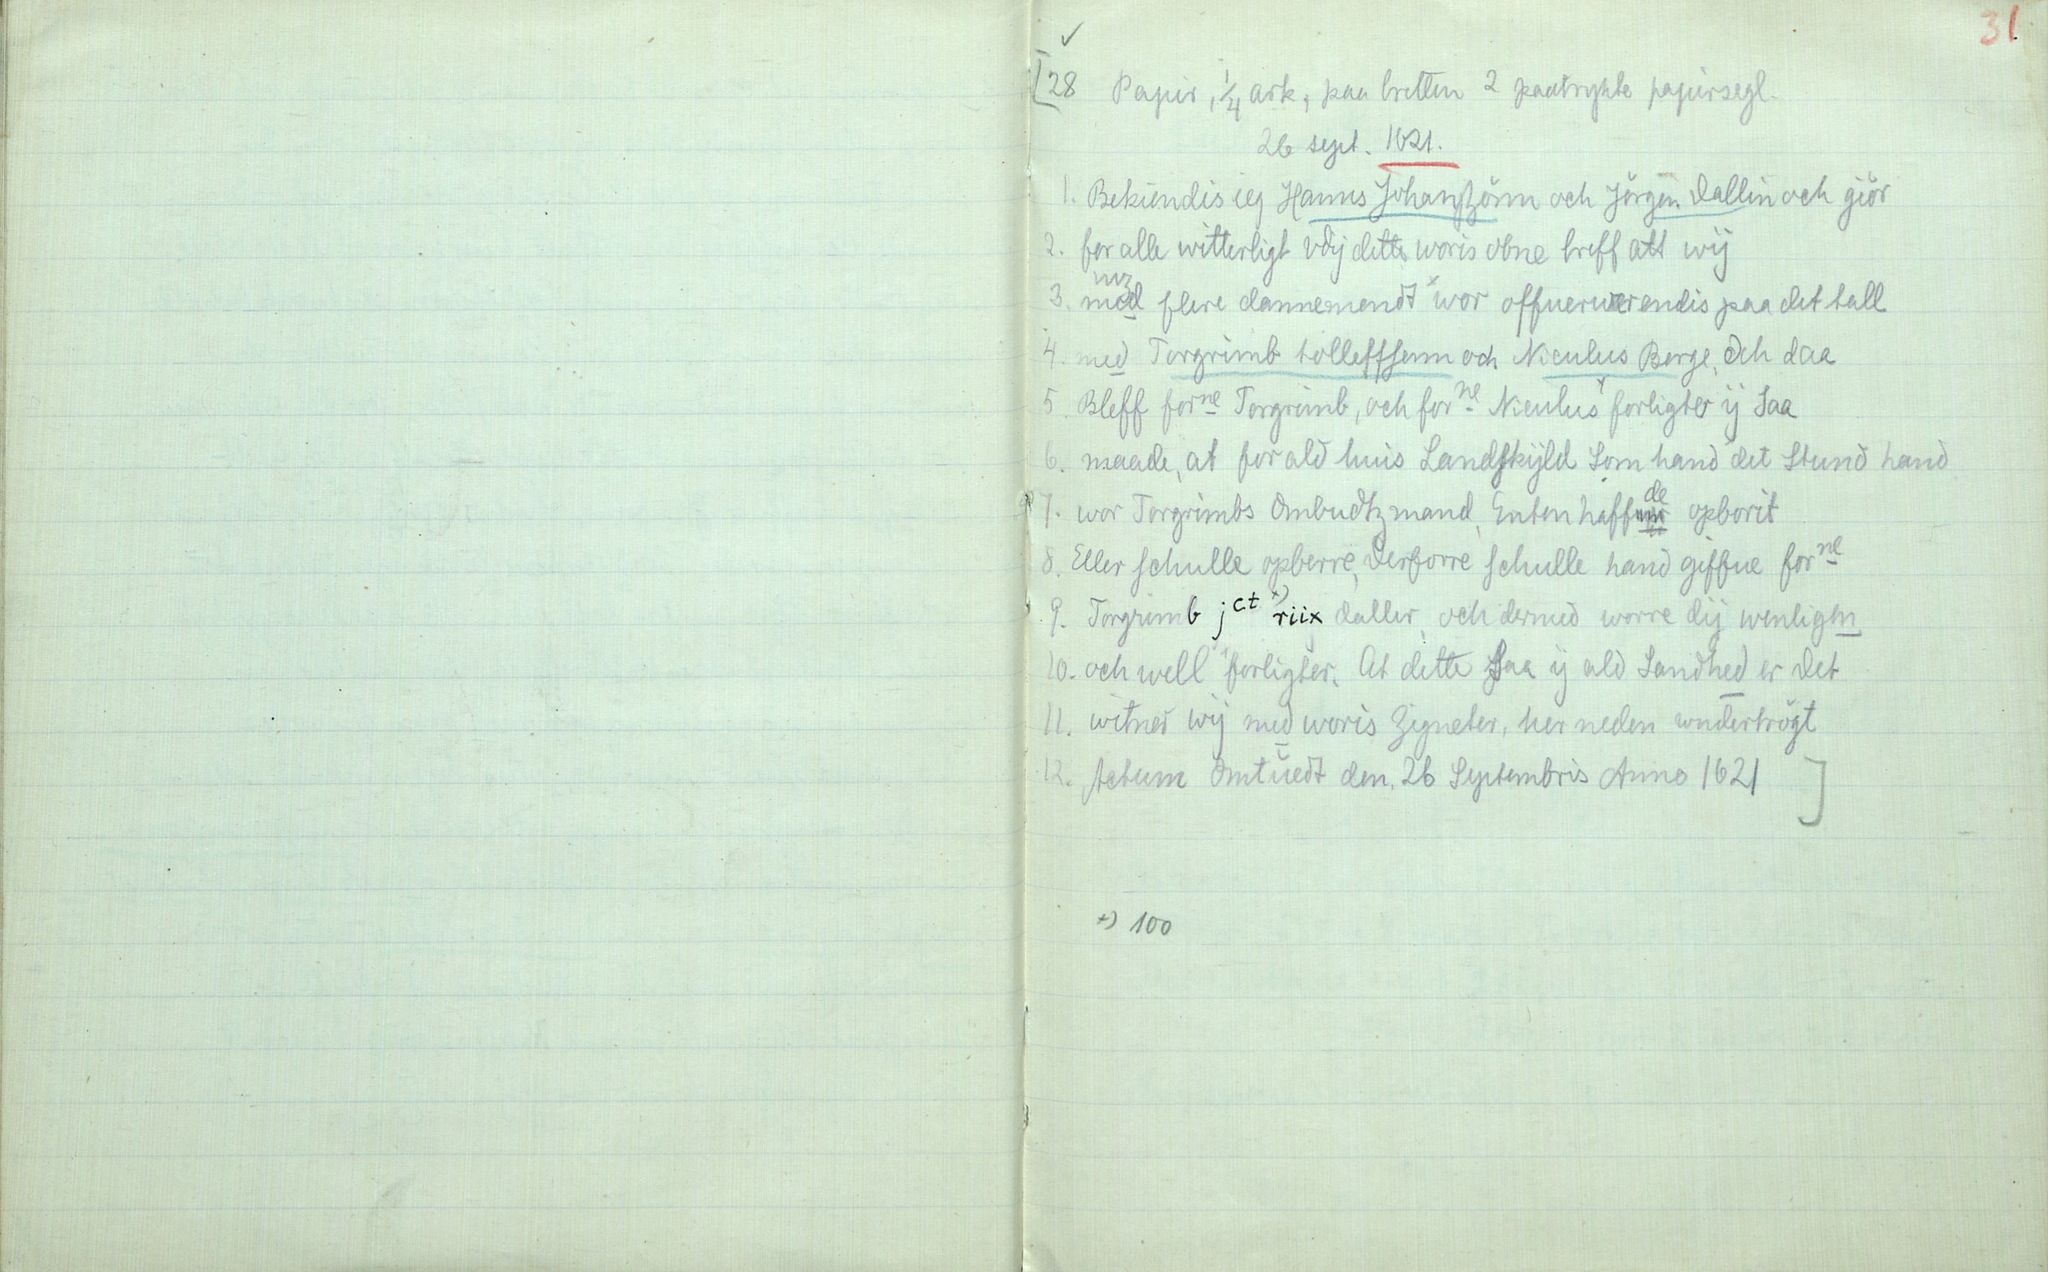 31
✓
[28 Papir, 1/4 ark, paa bretten 2 paatrykte papirsegl.
26 sept. 1621.
1. Bekiendis ieg Hanns Johanßönn och Jörgen Dallin och giör
2. for alle witterligt vdij dette woris obne breff att wij
mz
3. med flere dannemendt wor offuerwerendis paa det tall
4. med Torgrimb tolleffsenn och Niculus Berge, Och daa
5. Bleff forne Torgrimb, och forne Niculus forligter ij Saa
6. maade, at for ald huis Landskyld Som hand det Stund hand
de
7. wor Torgrimbs Ombudtzmand, Enten haffuer opborit
8. Eller schulle opberre, derforre schulle hand giffue forne
9. Torgrimb jct +) riix daller, och dermed worre dij wenligen
10. och well forligter. At dette Saa ij ald Sandhed er det
11. witner wij med woris Zigneter, her neden wndertrögt
12. Actum Omtuedt den. 26 Septembris Anno 1621 ]
+) 100